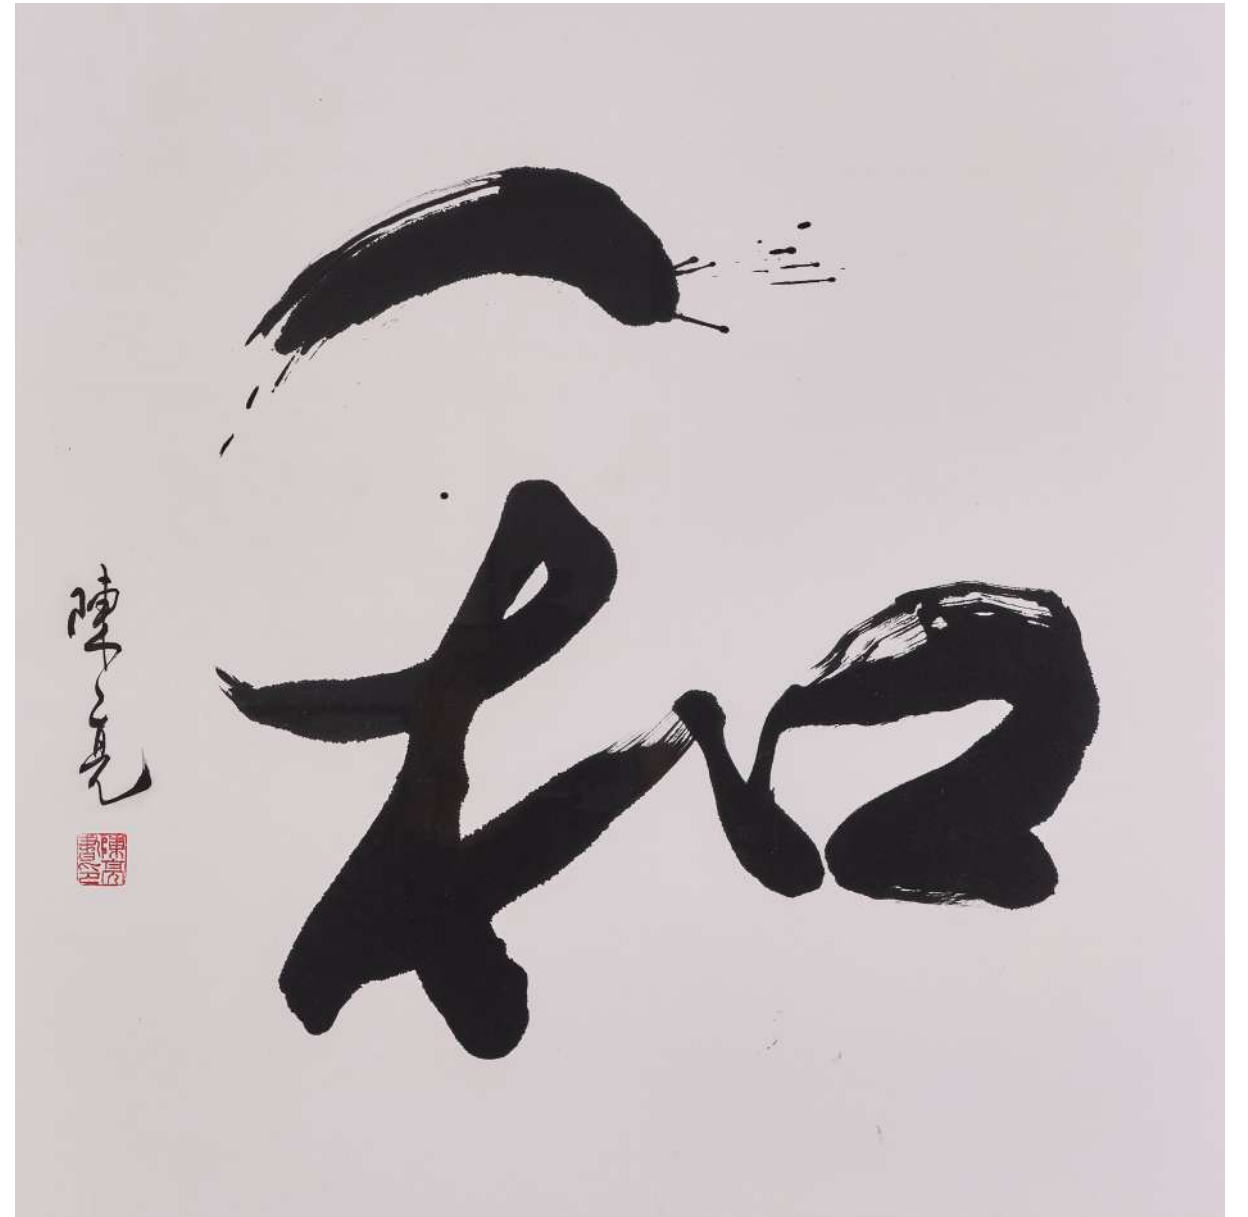 和
陳亮
陳亮書印